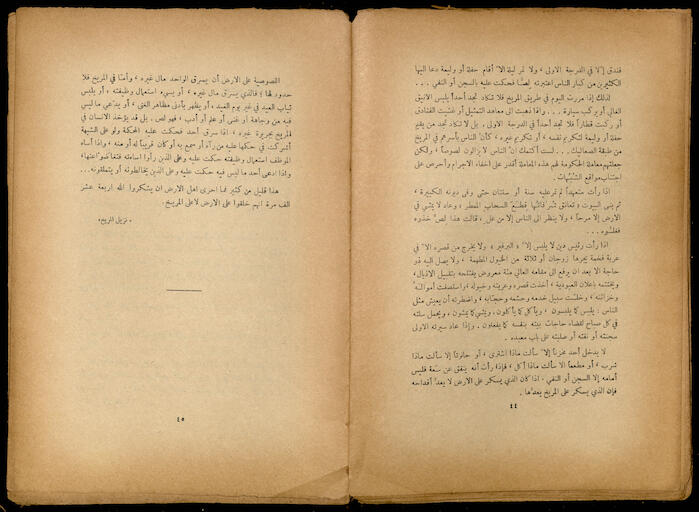 فندق إلا في الدرجة الاولى ، ولا تمر ليلة إلا أقام حفلة أو وليمة دعا اليها
الكثيرين من كبار الناس اعتبرته لصًّا فحكمت عليه بالسجن أو النفي ...
لذلك إذا مررت اليوم في طريق المريخ فلا تكاد تجد أحداً يلبس الانيق
الغالي أو يركب سيارة ... وإذا ذهبت الى معاهد التمثيل أو غشيت الفنادق
أو ركبت قطاراً فلا تجد أحداً في الدرجة الاولى . بل لا تكاد تجد من يقيم
حفلة أو وليمة لتكريم نفسه أو لتكريم غيره ، كأنّ الناس بأسرهم في المريخ
من طبقة الصعاليك ... لست أكتمك انّ الناس لا يزالون لصوصاً ، ولكن
جعلتهم معاملة الحكومة لهم هذه المعاملة أقدر على اخفاء الاجرام وأحرص على
اجتناب مواقع الشبهات .
اذا رأت متعهداً لم تمر عليه سنة أو سنتان حتى وفى ديونه الكثيرة ،
ثم بنى البيوت تعانق شرفاتها قطع السحاب الممطر وعاد لا يمشي في
الارض إلا مرحاً ، ولا ينظر الى الناس إلا من علِ ، قالت هذا لص خذوه
فغلّوه ...
اذا رأت رئيس دين لا يلبس إلا « البرفير » ولا يخرج من قصره الا في
عربة فخمة يجرها زوجان أو ثلاثة من الخيول المطهمة ، ولا يصل اليه ذو
حاجة الا بعد ان يرفع الى مقامه العالي مئة معروض يفتتحه بتقبيل الاذيال ،
ويختتمه باعلان العبودية ، أخذت قصره وعربته وخيوله ، واستصفت أمواله
وخزائنه ، وخلّت سبيل خدمه وحشمه وحجابه ، واضطرته أن يعيش مثل
الناس : يلبس كما يلبسون ، ويأكل كما يأكلون ، ويمشي كما يمشون ، ويحمل سلته
في كل صباح لقضاء حاجات بيته بنفسه كما يفعلون . وإذا عاد سيرته الاولى
سجنته أو نفته أو صلبته على باب معبده .
لا يدخل أحد مخزناً إلا سألت ماذا اشترى ، أو حانوتاً إلا سألت ماذا
شرب ، أو مطعماً الا سألت ماذا أكل ، فاذا رأت أنه ينفق عن سعة فليس
أمامه إلا السجن أو النفي . اذا كان الذي يسكر على الارض لا يعدّ أقداحه
فإن الذي يسكر على المريخ يعدّها .
٤٤
اللصوصية على الارض أن يسرق الواحد مال غيره ، وأمّا في المريخ فلا
حدود لها ؛ فالذي يسرق مال غيره ، أو يسيء استعمال وظيفته ، أو يلبس
ثياب العيد في غير يوم العيد ، أو يظهر بأدنى مظاهر الغنى ، أو يدّعي ما ليس
فيه من وجاهة أو غنى أو علم أو أدب ، فهو لص . بل قد يؤخذ الانسان في
المريخ بجريرة غيره . اذا سرق أحد فحكمت عليه المحكمة ولو على الشبهة
أشركت في حكمها عليه من رآه أو سمع به أو كان قريباً له أو منه ، واذا أساء
الموظف استعمال وظيفته حكمت عليه وعلى الذين رأوا اساءته فتغاضوا عنها ،
واذا ادعى أحد ما ليس فيه حكمت عليه وعلى الذين يخالطونه أو يتملقونه ...
هذا قليل من كثير فما احرى اهل الارض ان يشكروا الله اربعة عشر
الف مرة انهم خلقوا على الارض لا على المريخ .
« نزيل المريخ »
٤٥